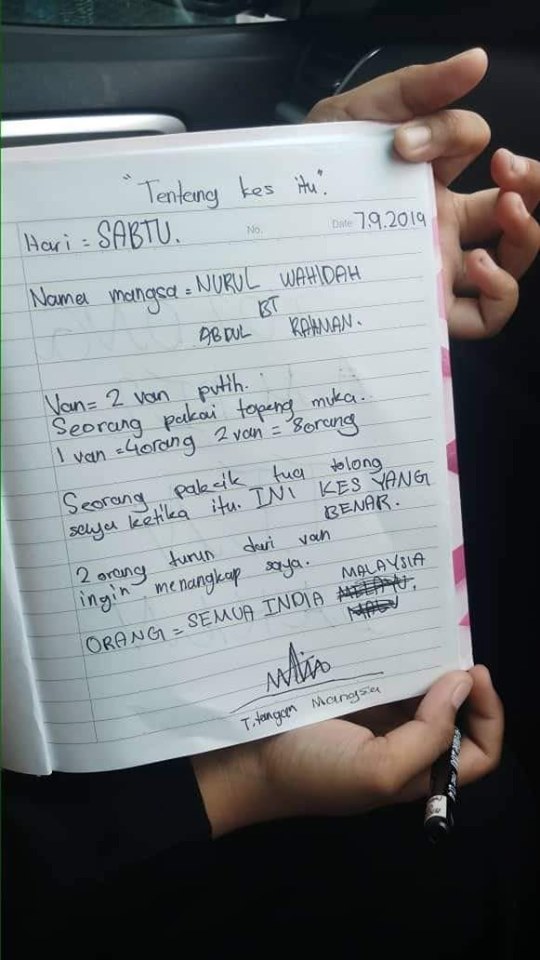 "Tentang kes itu".
Hari = SABTU. No. Date 7.9.2019
Nama mangsa = NURUL WAHIDAH
BT
ABDUL RAHMAN.
Van = 2 van putih.
Seorang pakai topeng muka.
1 van = 4orang 2 van = 8orang
Seorang pakcik tua tolong
saya ketika itu. INI KES YANG
BENAR.
2 orang turun dari van
ingin menangkap saya.
MALAYSIA
ORANG = SEMUA INDIA
T.tangan Mangsa